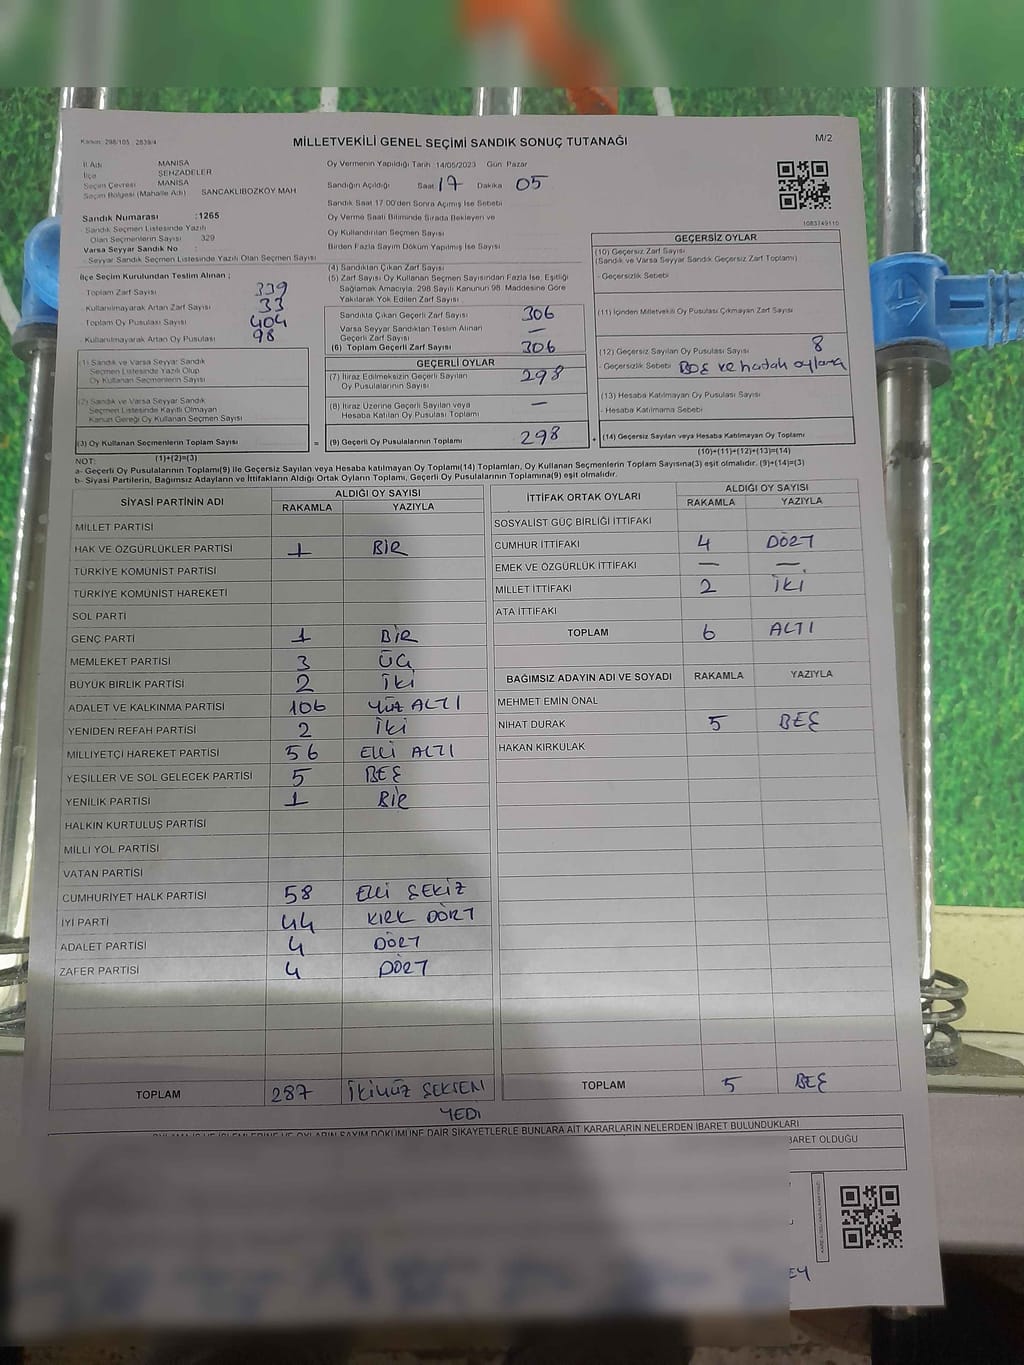 Kanun: 298/105, 2839/4
MİLLETVEKİLİ GENEL SEÇİMİ SANDIK SONUÇ TUTANAĞI
M/2
İl Adı MANİSA
İlçe ŞEHZADELER
Seçim Çevresi MANİSA
Seçim Bölgesi (Mahalle Adı) SANCAKLIBOZKÖY MAH
Sandık Numarası :1265
Sandık Seçmen Listesinde Yazılı
Olan Seçmenlerin Sayısı 329
Varsa Seyyar Sandık No :
- Seyyar Sandık Seçmen Listesinde Yazılı Olan Seçmen Sayısı
Oy Vermenin Yapıldığı Tarih :14/05/2023 Gün: Pazar
Sandığın Açıldığı Saat 17 Dakika 05
Sandık Saat 17:00'den Sonra Açılmış İse Sebebi
Oy Verme Saati Bitiminde Sırada Bekleyen ve
Oy Kullandırılan Seçmen Sayısı
Birden Fazla Sayım Döküm Yapılmış İse Sayısı
1083749110
İlçe Seçim Kurulundan Teslim Alınan ;
- Toplam Zarf Sayısı 339
- Kullanılmayarak Artan Zarf Sayısı 33
- Toplam Oy Pusulası Sayısı 404
- Kullanılmayarak Artan Oy Pusulası 98
(1) Sandık ve Varsa Seyyar Sandık
Seçmen Listesinde Yazılı Olup
Oy Kullanan Seçmenlerin Sayısı
(2) Sandık ve Varsa Seyyar Sandık
Seçmen Listesinde Kayıtlı Olmayan
Kanun Gereği Oy Kullanan Seçmen Sayısı
(3) Oy Kullanan Seçmenlerin Toplam Sayısı
(4) Sandıktan Çıkan Zarf Sayısı
(5) Zarf Sayısı Oy Kullanan Seçmen Sayısından Fazla İse, Eşitliği
Sağlamak Amacıyla, 298 Sayılı Kanunun 98. Maddesine Göre
Yakılarak Yok Edilen Zarf Sayısı
Sandıkta Çıkan Geçerli Zarf Sayısı 306
Varsa Seyyar Sandıktan Teslim Alınan
Geçerli Zarf Sayısı —
(6) Toplam Geçerli Zarf Sayısı 306
GEÇERLİ OYLAR
(7) İtiraz Edilmeksizin Geçerli Sayılan
Oy Pusulalarının Sayısı 298
(8) İtiraz Üzerine Geçerli Sayılan veya
Hesaba Katılan Oy Pusulası Toplamı —
= (9) Geçerli Oy Pusulalarının Toplamı 298 +
GEÇERSİZ OYLAR
(10) Geçersiz Zarf Sayısı
(Sandık ve Varsa Seyyar Sandık Geçersiz Zarf Toplamı)
- Geçersizlik Sebebi
(11) İçinden Milletvekili Oy Pusulası Çıkmayan Zarf Sayısı
(12) Geçersiz Sayılan Oy Pusulası Sayısı 8
- Geçersizlik Sebebi BOŞ ve hatalı oylama
(13) Hesaba Katılmayan Oy Pusulası Sayısı
- Hesaba Katılmama Sebebi
(14) Geçersiz Sayılan veya Hesaba Katılmayan Oy Toplamı
NOT: (1)+(2)=(3)
(10)+(11)+(12)+(13)=(14)
a- Geçerli Oy Pusulalarının Toplamı(9) ile Geçersiz Sayılan veya Hesaba katılmayan Oy Toplamı(14) Toplamları, Oy Kullanan Seçmenlerin Toplam Sayısına(3) eşit olmalıdır. (9)+(14)=(3)
b- Siyasi Partilerin, Bağımsız Adayların ve İttifakların Aldığı Ortak Oyların Toplamı, Geçerli Oy Pusulalarının Toplamına(9) eşit olmalıdır.
SİYASİ PARTİNİN ADI ALDIĞI OY SAYISI
RAKAMLA YAZIYLA
MİLLET PARTİSİ
HAK VE ÖZGÜRLÜKLER PARTİSİ 1 BİR
TÜRKİYE KOMÜNİST PARTİSİ
TÜRKİYE KOMÜNİST HAREKETİ
SOL PARTİ
GENÇ PARTİ 1 BİR
MEMLEKET PARTİSİ 3 ÜÇ
BÜYÜK BİRLİK PARTİSİ 2 İKİ
ADALET VE KALKINMA PARTİSİ 106 YÜZ ALTI
YENİDEN REFAH PARTİSİ 2 İKİ
MİLLİYETÇİ HAREKET PARTİSİ 56 ELLİ ALTI
YEŞİLLER VE SOL GELECEK PARTİSİ 5 BEŞ
YENİLİK PARTİSİ 1 BİR
HALKIN KURTULUŞ PARTİSİ
MİLLİ YOL PARTİSİ
VATAN PARTİSİ
CUMHURİYET HALK PARTİSİ 58 ELLİ SEKİZ
İYİ PARTİ 44 KIRK DÖRT
ADALET PARTİSİ 4 DÖRT
ZAFER PARTİSİ 4 DÖRT
TOPLAM 287 İKİYÜZ SEKSEN
YEDİ
İTTİFAK ORTAK OYLARI ALDIĞI OY SAYISI
RAKAMLA YAZIYLA
SOSYALİST GÜÇ BİRLİĞİ İTTİFAKI
CUMHUR İTTİFAKI 4 DÖRT
EMEK VE ÖZGÜRLÜK İTTİFAKI — —
MİLLET İTTİFAKI 2 İKİ
ATA İTTİFAKI
TOPLAM 6 ALTI
BAĞIMSIZ ADAYIN ADI VE SOYADI RAKAMLA YAZIYLA
MEHMET EMİN ÖNAL
NİHAT DURAK 5 BEŞ
HAKAN KIRKULAK
TOPLAM 5 BEŞ
OYLAMA İŞ VE İŞLEMLERİNE VE OYLARIN SAYIM DÖKÜMÜNE DAİR ŞİKAYETLERLE BUNLARA AİT KARARLARIN NELERDEN İBARET BULUNDUKLARI
BARET OLDUĞU
EY